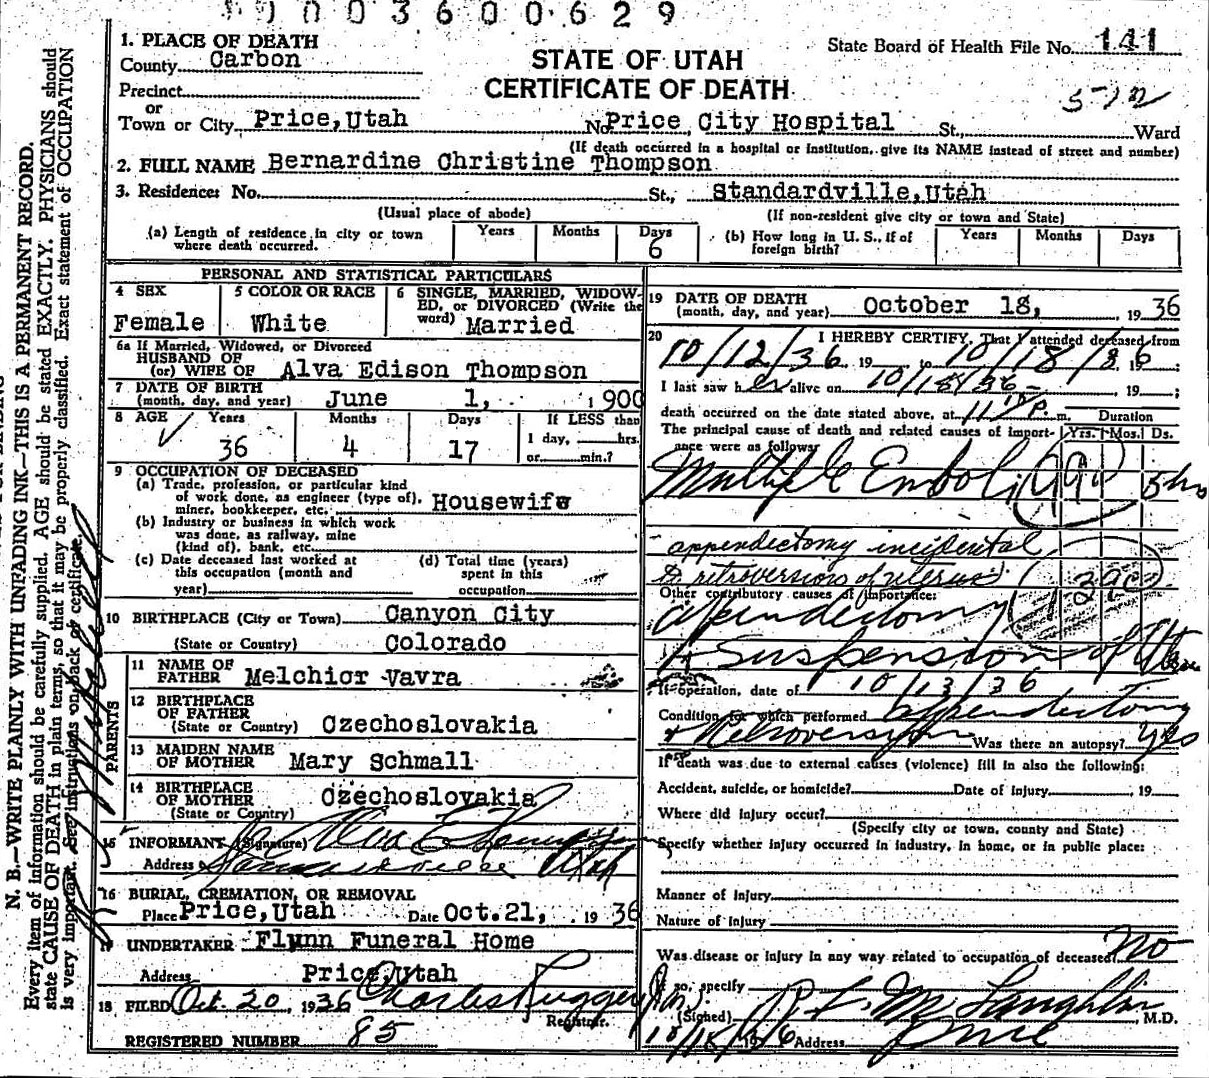 0003600629
1. PLACE OF DEATH
County Carbon
STATE OF UTAH
CERTIFICATE OF DEATH
State Board of Health File No. 141
Precinct
or
Town or City Price, Utah No. Price City Hospital St., Ward
(If death occurred in a hospital or institution, give its NAME instead of street and number)
2. FULL NAME Bernardine Christine Thompson
3. Residence: No. St., Standardville, Utah
(Usual place of abode) (If non-resident give city or town and State)
(a) Length of residence in city or town where death occurred. Years Months Days 6
(b) How long in U. S., if of foreign birth? Years Months Days
PERSONAL AND STATISTICAL PARTICULARS
4 SEX Female
5 COLOR OR RACE White
6 SINGLE, MARRIED, WIDOWED, OR DIVORCED (Write the word) Married
6a If Married, Widowed, or Divorced
HUSBAND OF
(or) WIFE OF Alva Edison Thompson
7 DATE OF BIRTH
(month, day, and year) June 1, 1900
8 AGE Years Months Days If LESS than
36 4 17 1 day, hrs.
or min.?
9 OCCUPATION OF DECEASED
(a) Trade, profession, or particular kind
of work done, as engineer (type of),
miner, bookkeeper, etc. Housewife
(b) Industry or business in which work
was done, as railway, mine
(kind of), bank, etc.
(c) Date deceased last worked at
this occupation (month and
year)
(d) Total time (years)
spent in this
occupation
10 BIRTHPLACE (City or Town) Canyon City
(State or Country) Colorado
PARENTS
11 NAME OF
FATHER Melchior Vavra
12 BIRTHPLACE
OF FATHER
(State or Country) Czechoslovakia
13 MAIDEN NAME
OF MOTHER Mary Schmall
14 BIRTHPLACE
OF MOTHER Czechoslovakia
(State or Country)
15 INFORMANT (Signature) Alva E Thompson
Address Standardville Utah
16 BURIAL, CREMATION, OR REMOVAL
Place Price, Utah Date Oct. 21, 1936
17 UNDERTAKER Flynn Funeral Home
Address Price, Utah
18 FILED Oct. 20, 1936 Charles Ruggeri Jr.
Registrar.
REGISTERED NUMBER 85
19 DATE OF DEATH
(month, day, and year) October 18, 1936
20 I HEREBY CERTIFY, That I attended deceased from
10/12/36 19 to 10/18/36
I last saw her alive on 10/18/36 19 ;
death occurred on the date stated above, at 11 P. m. Duration
The principal cause of death and related causes of importance were as follows: Yrs. Mos. Ds.
Multiple Emboli 5 hrs
appendectomy incidental
to retroversion of uterus
Other contributory causes of importance:
Appendectomy
Suspension of Uterus
If operation, date of 10/13/36
Condition for which performed appendectomy
+ Retroversion Was there an autopsy? yes
If death was due to external causes (violence) fill in also the following:
Accident, suicide, or homicide? Date of injury 19
Where did injury occur?
(Specify city or town, county and State)
Specify whether injury occurred in industry, in home, or in public place:
Manner of injury
Nature of injury
Was disease or injury in any way related to occupation of deceased? No
If so, specify
(Signed) McLaughlin, M.D.
10/18/36 Address Price
N. B.—WRITE PLAINLY WITH UNFADING INK—THIS IS A PERMANENT RECORD.
Every item of information should be carefully supplied. AGE should be stated EXACTLY. PHYSICIANS should
state CAUSE OF DEATH in plain terms, so that it may be properly classified. Exact statement of OCCUPATION
is very important. See instructions on back of certificate.